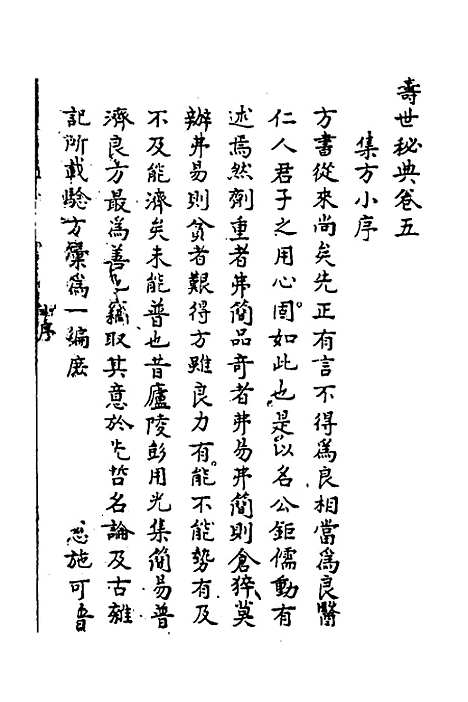 壽世秘典卷五
集方小序
方書從來尚矣先正有言不得爲良相當爲良醫
仁人君子之用心固如此也是以名公鉅儒動有
述焉然劑重者弗簡品奇者弗易弗簡則倉猝莫
辦弗易則貧者艱得方雖良力有能不能勢有及
不及能濟矣未能普也昔廬陵彭用光集簡易普
濟良方最爲善已竊取其意於先哲名論及古雜
記所載驗方彙爲一編庶
施可音
小序